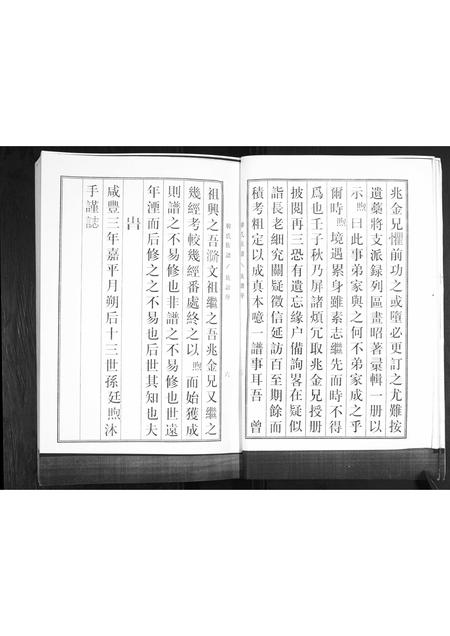 兆金兄懼前功之或墮必更訂之尤難按
遺藁將支派録列區畫昭著彙輯一册以
示煦曰此事弟家與之何不弟家成之乎
爾時煦境遇累身雖素志繼先而時不得
為也壬子秋乃屏諸煩冗取兆金兄授册
披閱再三恐有遺忘緣户備詢畧在疑似
詣長老細究關疑徵信延訪百至期餘而
積考粗定以成真本噫一譜事耳吾 曾
祖興之吾 文祖繼之吾兆金兄又繼之
幾經考較幾經番處終之以煦而始獲成
則譜之不易修也非譜之不易修也世遠
年湮而后修之之不易也后世其知也夫
旹
咸豐三年嘉平月朔后十三世孫廷煦沐
手謹誌